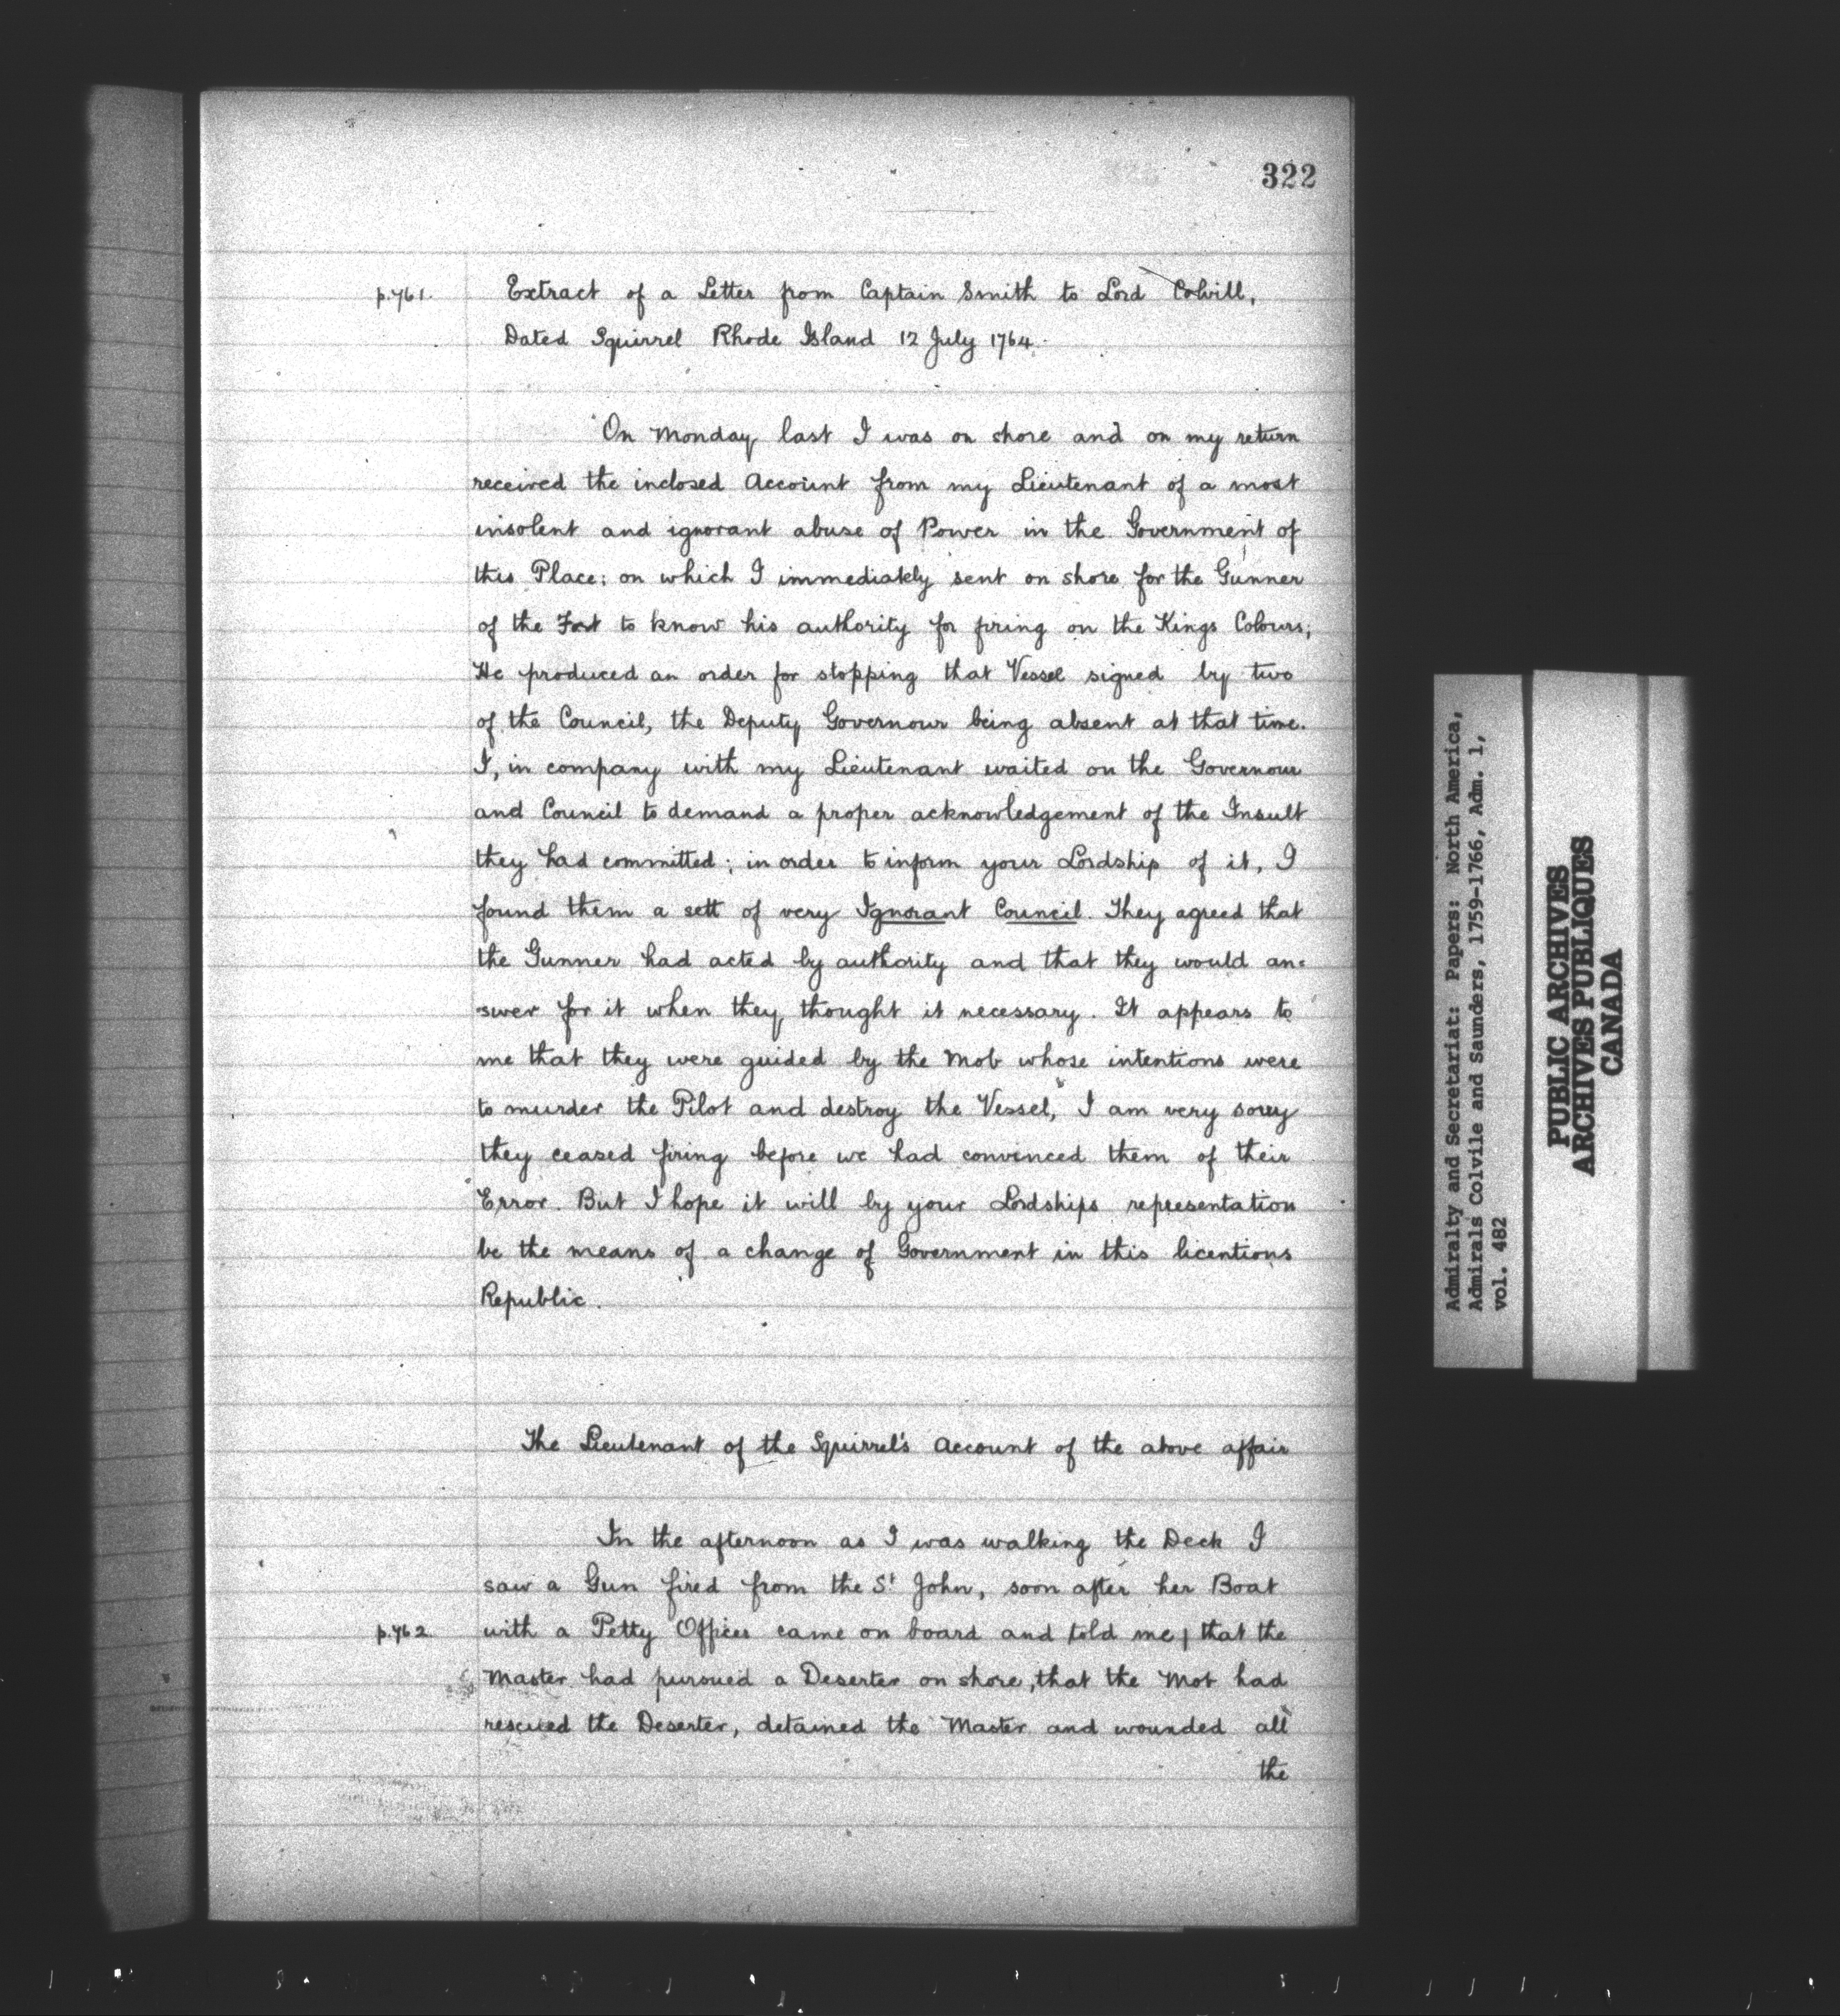 322
p.761. Extract of a Letter from Captain Smith to Lord Colvill,
Dated Squirrel Rhode Island 12 July 1764.
On Monday last I was on shore and on my return
received the inclosed Account from my Lieutenant of a most
insolent and ignorant abuse of Power in the Government of
this Place: on which I immediately sent on shore for the Gunner
of the Fort to know his authority for firing on the Kings Colours;
He produced an order for stopping that Vessel signed by two
of the Council, the Deputy Governour being absent at that time.
I, in company with my Lieutenant waited on the Governour
and Council to demand a proper acknowledgement of the Insult
they had committed; in order to inform your Lordship of it, I
found them a sett of very Ignorant Council. They agreed that
the Gunner had acted by authority and that they would an=
swer for it when they thought it necessary. It appears to
me that they were guided by the Mob whose intentions were
to murder the Pilot and destroy the Vessel, I am very sorey
they ceased firing before we had convinced them of their
Error. But I hope it will by your Lordships representation
be the means of a change of Government in this licentious
Republic.
The Lieutenant of the Squirrel's Account of the above affair
In the afternoon as I was walking the Deck I
saw a Gun fired from the St John, soon after her Boat
p.762. with a Petty Officer came on board and told me | that the
Master had pursued a Deserter on shore, that the Mob had
rescued the Deserter, detained the Master and wounded all
the
Admiralty and Secretariat: Papers: North America,
Admirals Colvile and Saunders, 1759-1766, Adm. 1,
vol. 482
PUBLIC ARCHIVES
ARCHIVES PUBLIQUES
CANADA